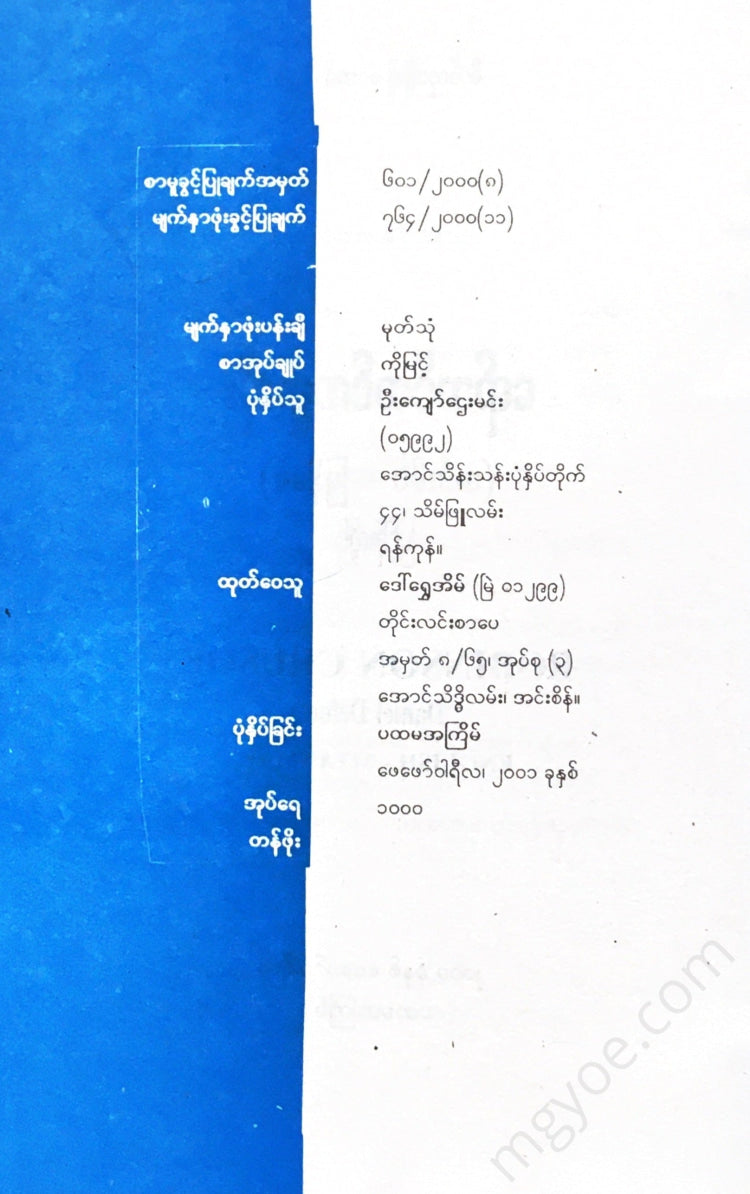 စာမူခွင့်ပြုချက်အမှတ် ၆၀၁/၂၀၀၀(၈)
မျက်နှာဖုံးခွင့်ပြုချက် ၇၆၄/၂၀၀၀(၁၁)
မျက်နှာဖုံးပန်းချီ မုတ်သုံ
စာအုပ်ချုပ် ကိုမြင့်
ပုံနှိပ်သူ ဦးကျော်ဌေးမင်း
(၀၅၉၉၂)
အောင်သိန်းသန်းပုံနှိပ်တိုက်
၄၄၊ သိမ်ဖြူလမ်း
ရန်ကုန်။
ထုတ်ဝေသူ ဒေါ်ရွှေအိမ် (မြဲ ၀၁၂၉၉)
တိုင်းလင်းစာပေ
အမှတ် ၈/၆၅၊ အုပ်စု (၃)
အောင်သိဒ္ဓိလမ်း၊ အင်းစိန်။
ပုံနှိပ်ခြင်း ပထမအကြိမ်
ဖေဖော်ဝါရီလ၊ ၂၀၀၁ ခုနှစ်
အုပ်ရေ ၁၀၀၀
တန်ဖိုး
mgyoe.com